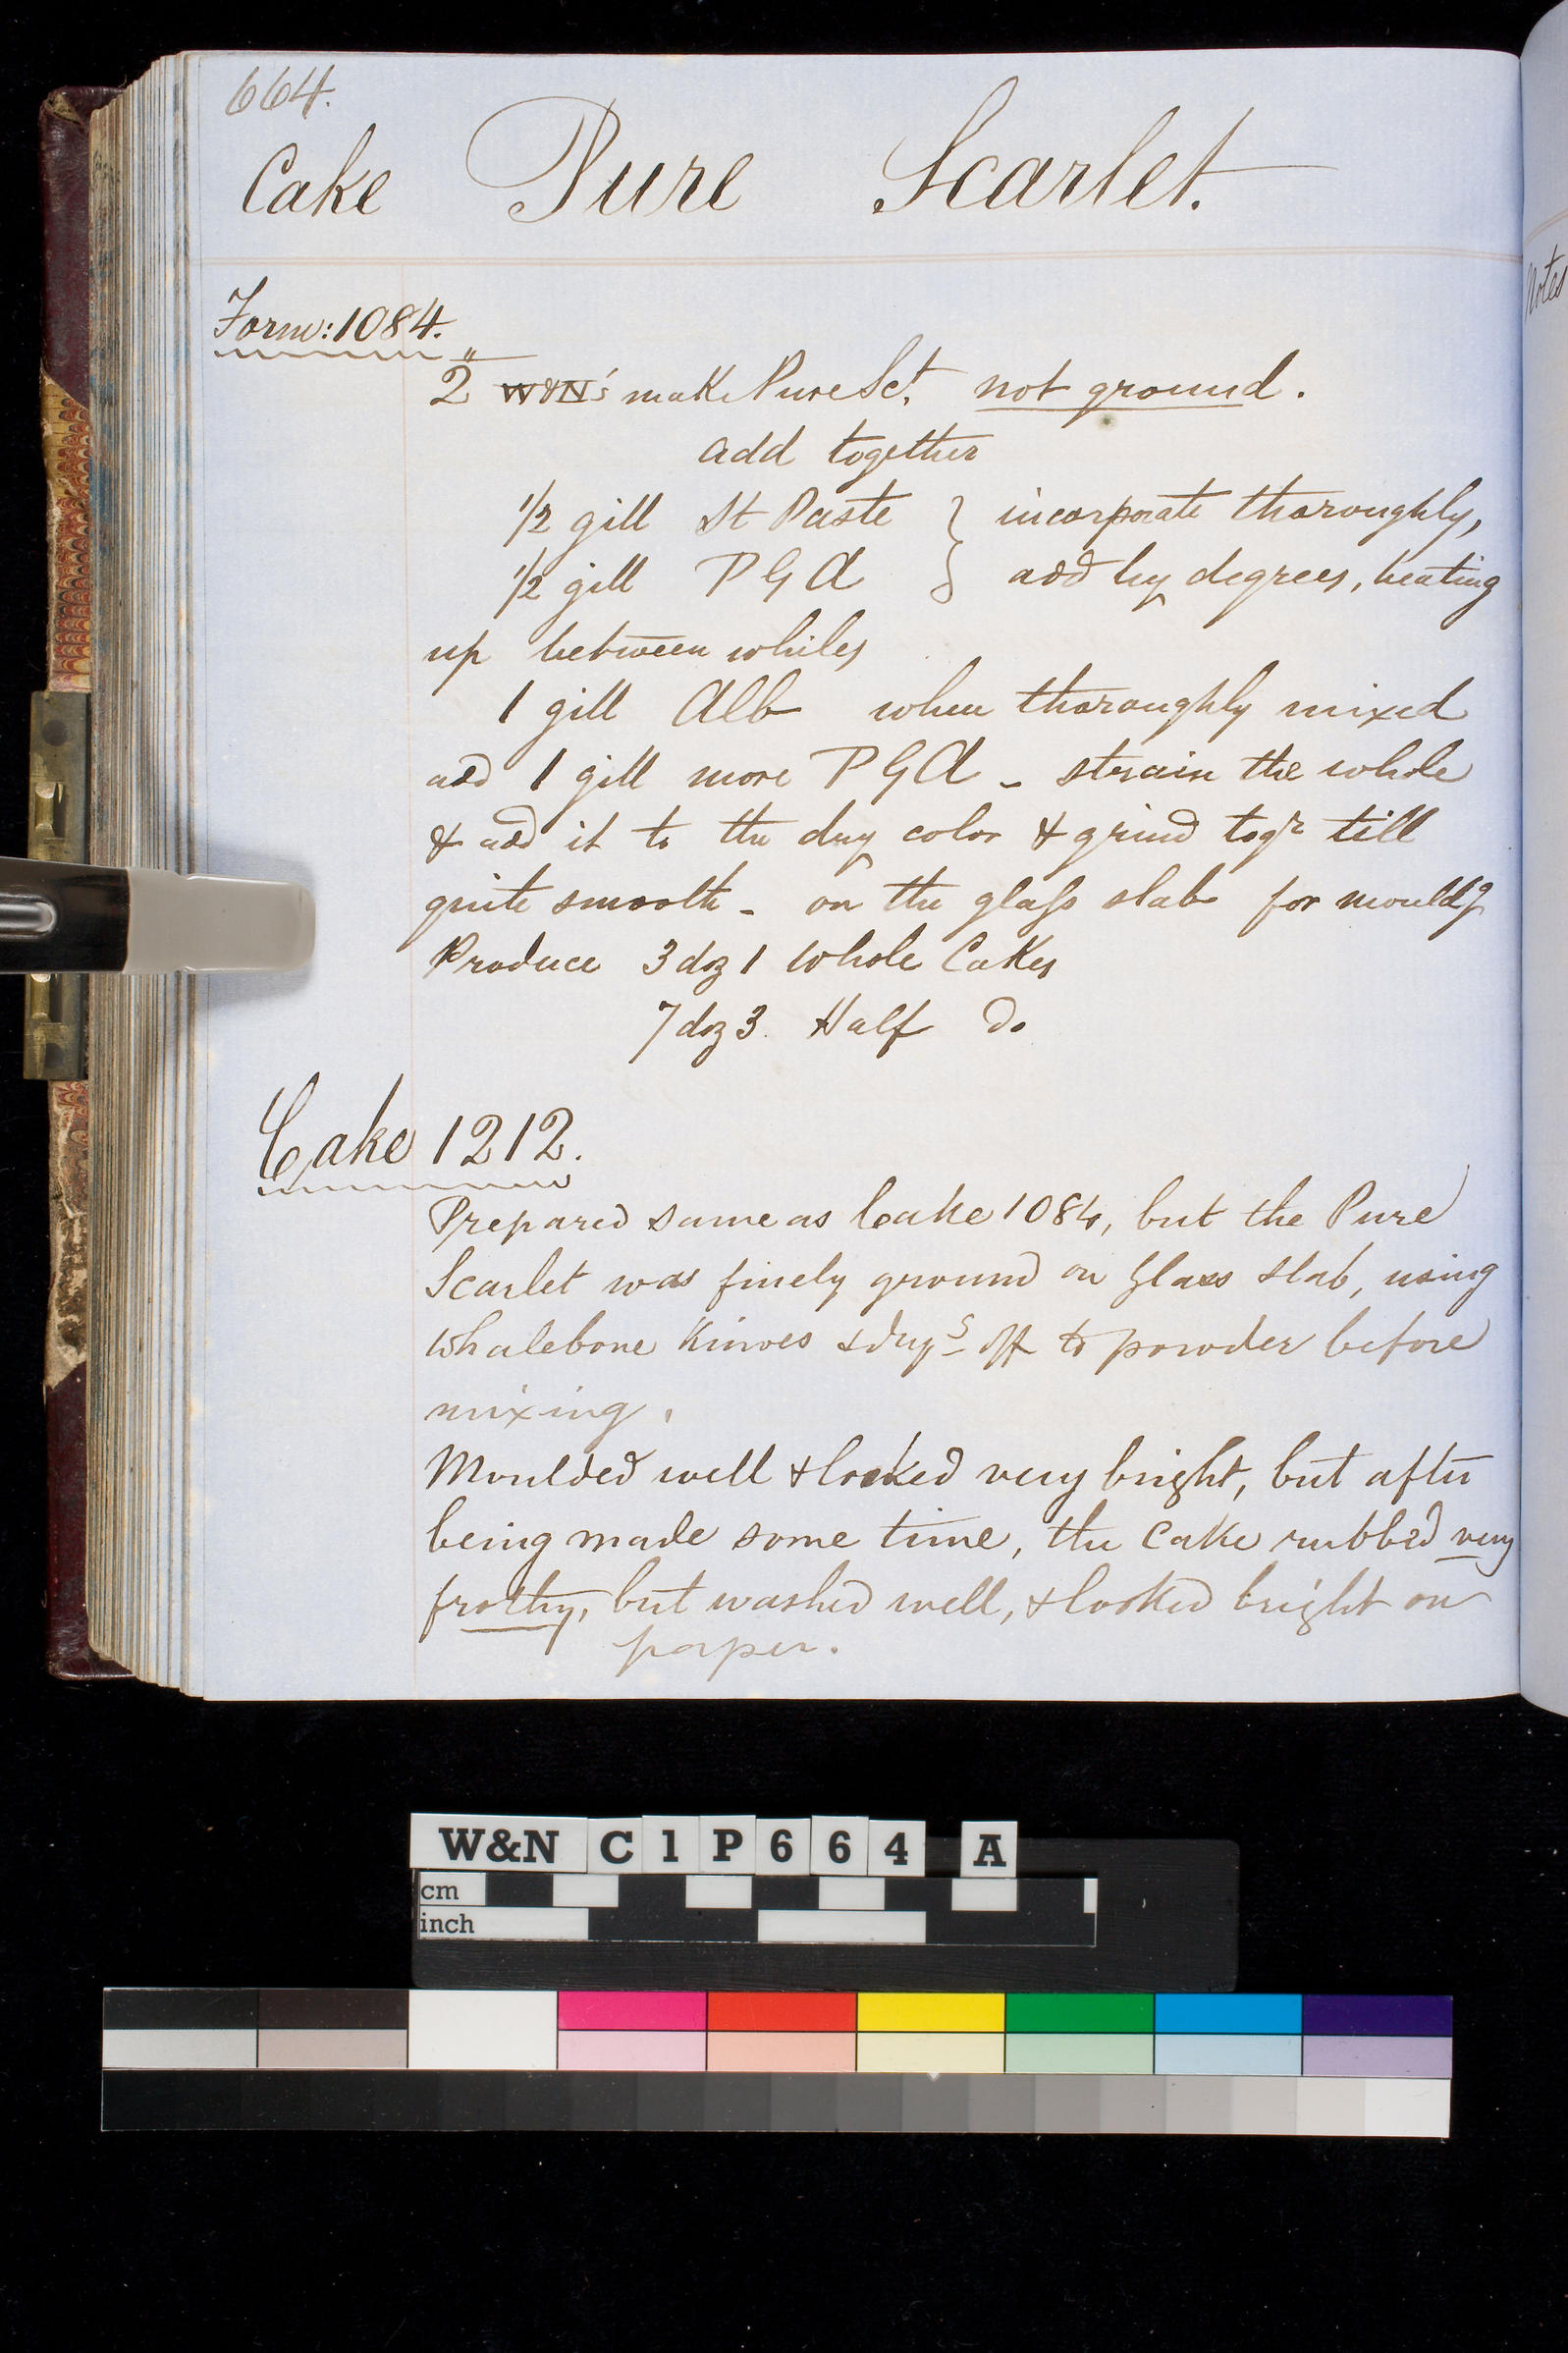 664.
Cake Pure Scarlet.
Form: 1084.
2 " W&N's make Pure Sct. not ground.
add together
1/2 gill St Paste } incorporate thoroughly,
1/2 gill P G A } add by degrees, beating
up between whiles
1 gill Alb when thoroughly mixed
add 1 gill more P G A - strain the whole
& add it to the dry color & grind togr till
quite smooth - on the glass slab for mouldg
Produce 3 doz 1 Whole Cakes
7 doz 3. Half Do
Cake 1212.
Prepared same as Cake 1084, but the Pure
Scarlet was finely ground on Glass slab, using
Whalebone Knives & dryg off to powder before
mixing.
Moulded well & looked very bright, but after
being made some time, the Cake rubbed very
frothy, but washed well, & looked bright on
paper.
Notes
W&N C1P664 A
cm
inch